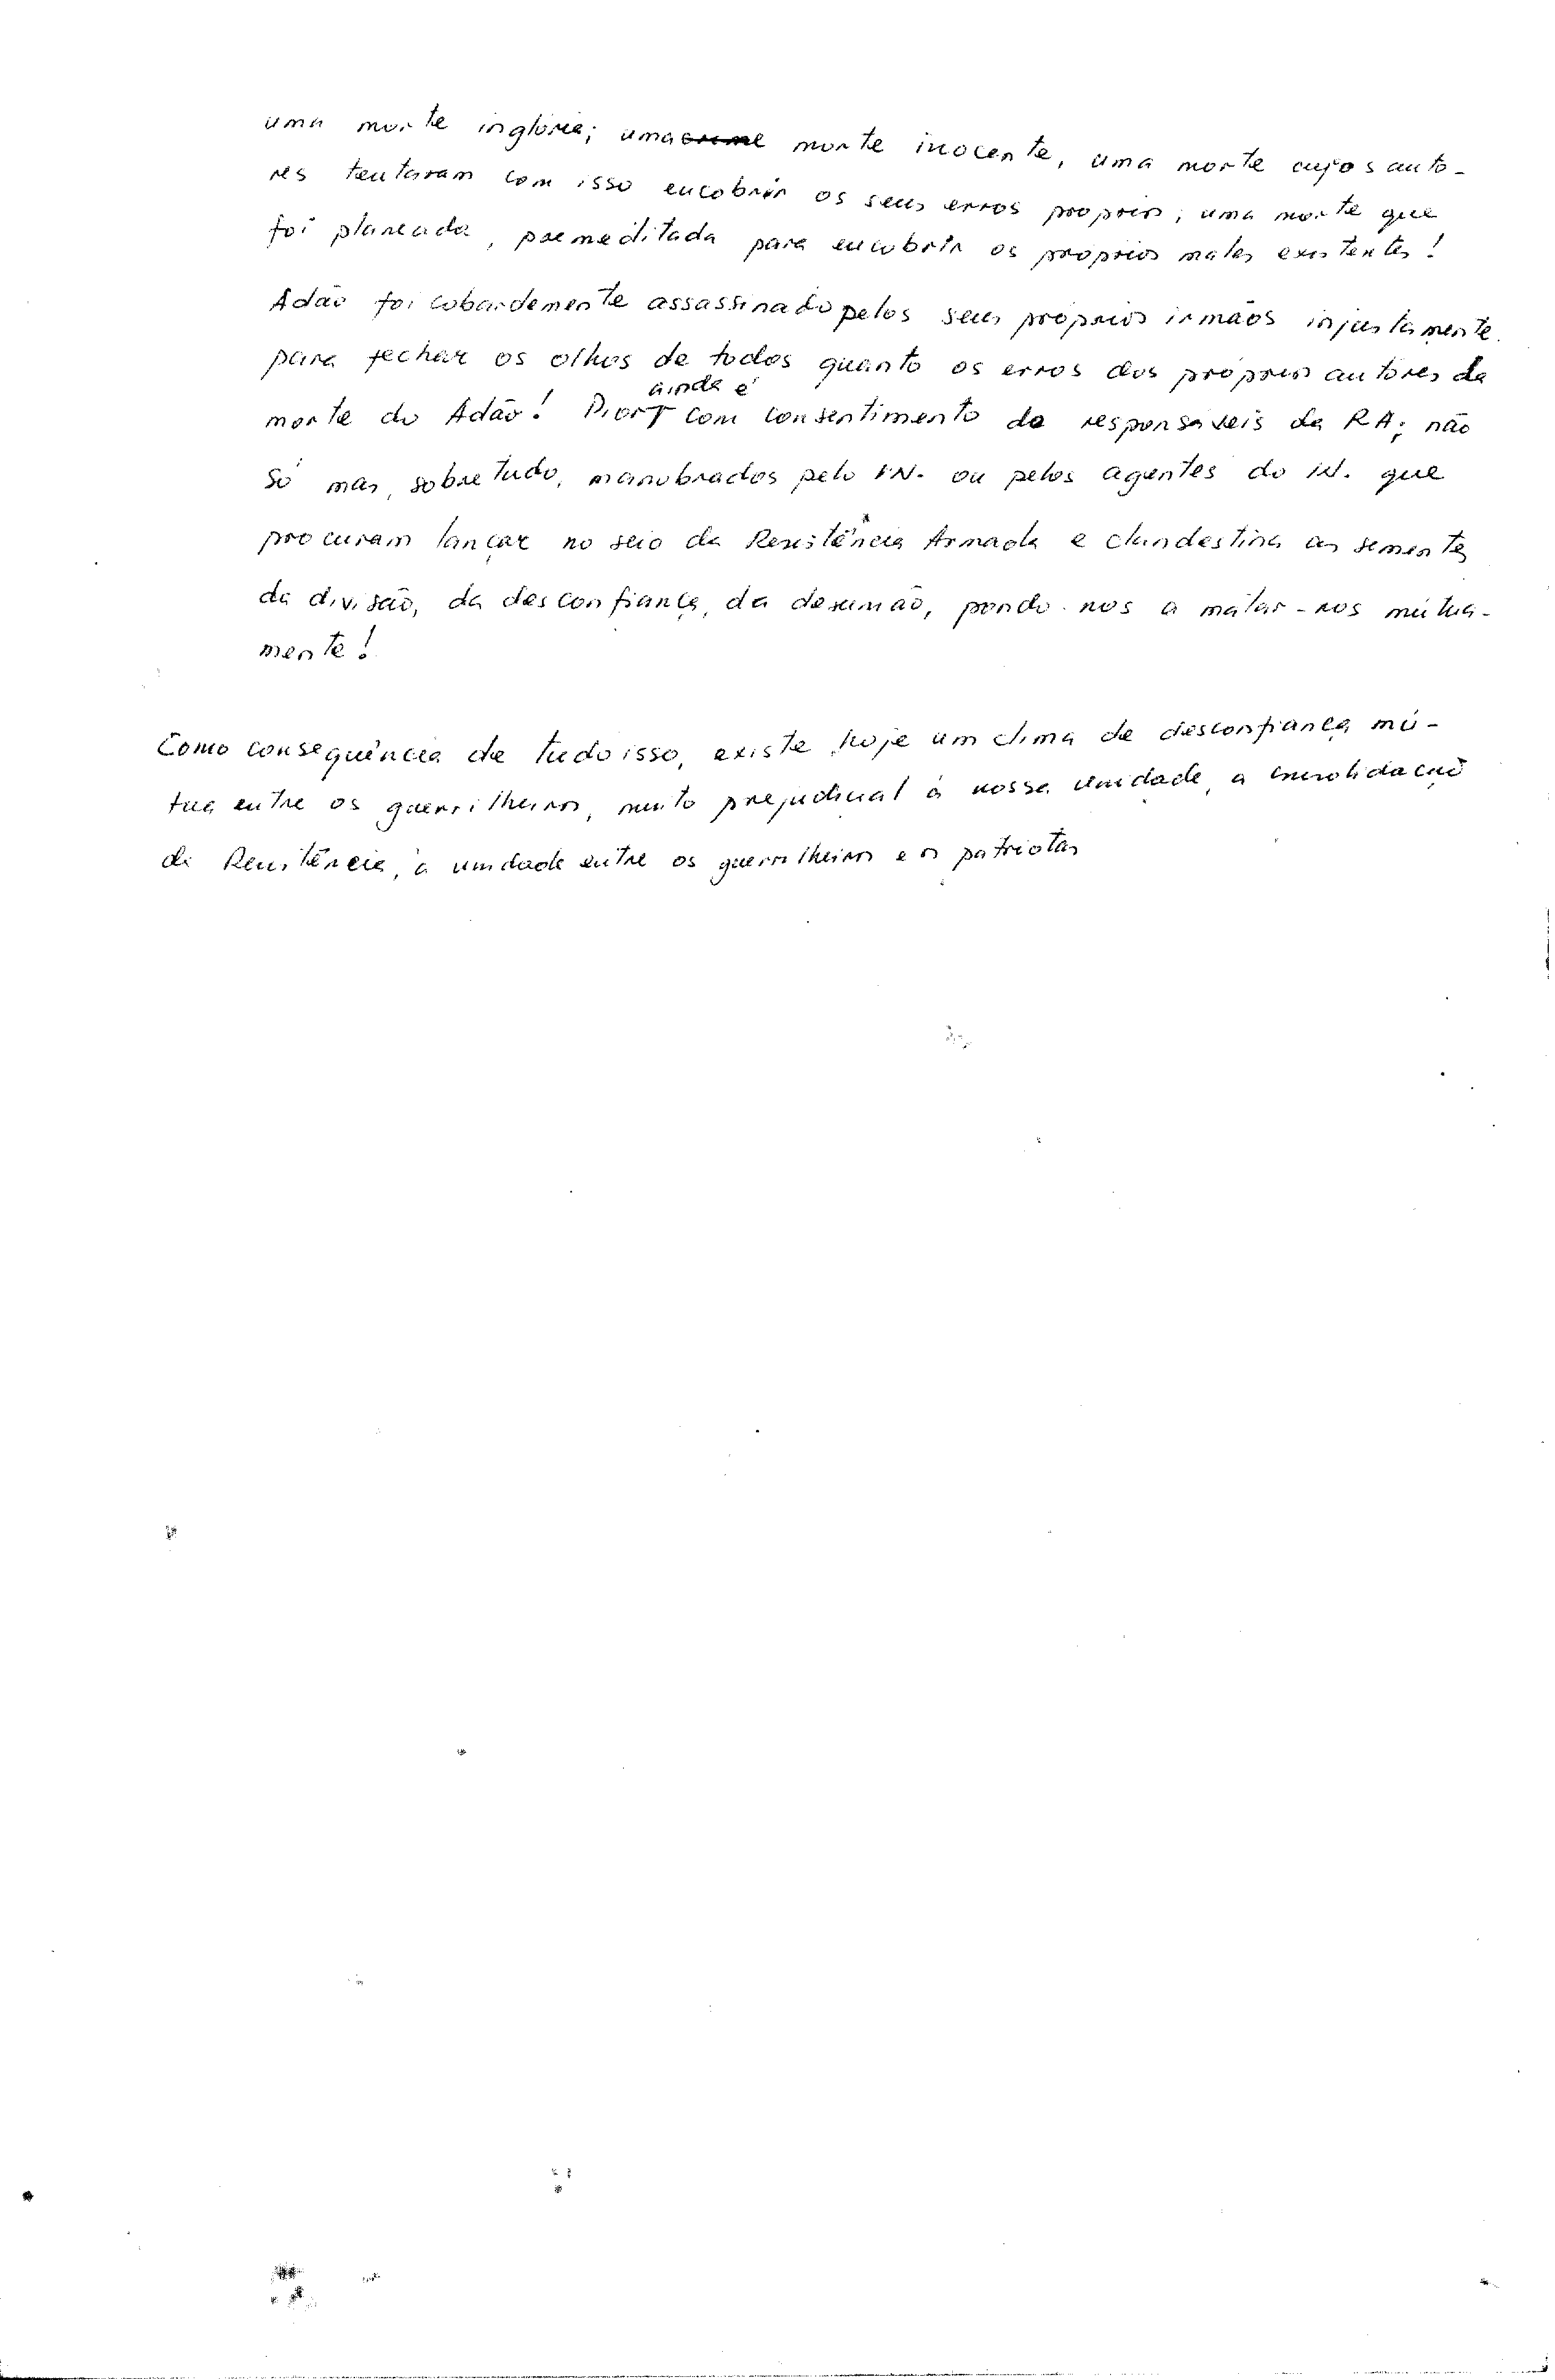 uma morte inglória; uma crime morte inocente, uma morte cujos auto-
res tentaram com isso encobrir os seus erros próprios; uma morte que
foi planeada, premeditada para encobrir os próprios males existentes!
Adão foi cobardemente assassinado pelos seus próprios irmãos injustamente
para fechar os olhos de todos quanto os erros dos próprios autores da
ainda é
morte do Adão! Pior com consentimento de responsáveis da RA; não
só mas, sobretudo, manobrados pelo IN. ou pelos agentes do IN. que
procuram lançar no seio da Resistência Armada e clandestina as sementes
da divisão, da desconfiança, da desunião, pondo-nos a matar-nos mútua-
mente!
Como consequência de tudo isso, existe hoje um clima de desconfiança mú-
tua entre os guerrilheiros, muito prejudicial à nossa unidade, a consolidação
da Resistência, à unidade entre os guerrilheiros e os patriotas